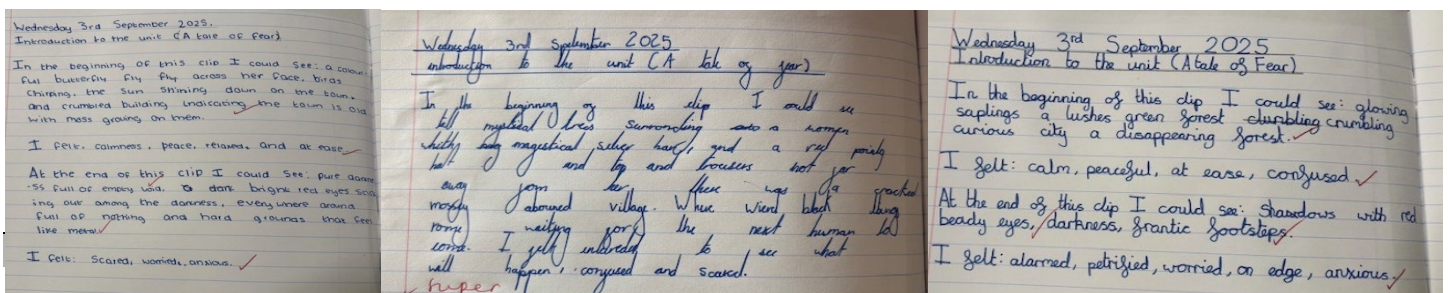 Wednesday 3rd September 2025.
Introduction to the unit (A tale of Fear)
In the beginning of this clip I could see: a colour-
ful butterfly fly fly across her face, birds
chirping, the sun shining down on the town,
and crumbled building indicating the town is old
with moss growing on them.
I felt: calmness, peace, relaxed, and at ease
At the end of this clip I could see: pure
full of empty void, dark bright red eyes
ing out among the darkness, everywhere around
full of nothing and hard grounds that feel
like metal
I felt: scared, worried, anxious.
Wednesday 3rd 2025
introduction to the unit (A tale of fear)
In the beginning of this clip I could see
tall mystical trees surronding a women
magestical silver hair, and a red pointy
hat and top and trousers not far
away from her there was a cracked
mossy village. Where wierd black
waiting for the next human to
come. I felt to see what
will happen, confused and scared.
Super
Wednesday 3rd September 2025
Introduction to the unit (A tale of Fear)
In the beginning of this clip I could see: glowing
saplings a lushes green forest crumbling
curious city a disappearing forest.
I felt: calm, peaceful, at ease, confused
At the end of this clip I could see: Shadows with red
beady eyes, darkness, frantic footsteps.
I felt: alarmed, petrified, worried, on edge, anxious.